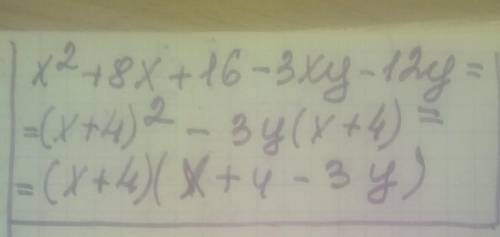 x²+8x+16-3xy-12y=
=(x+4)²-3y(x+4)=
=(x+4)(x+4-3y)